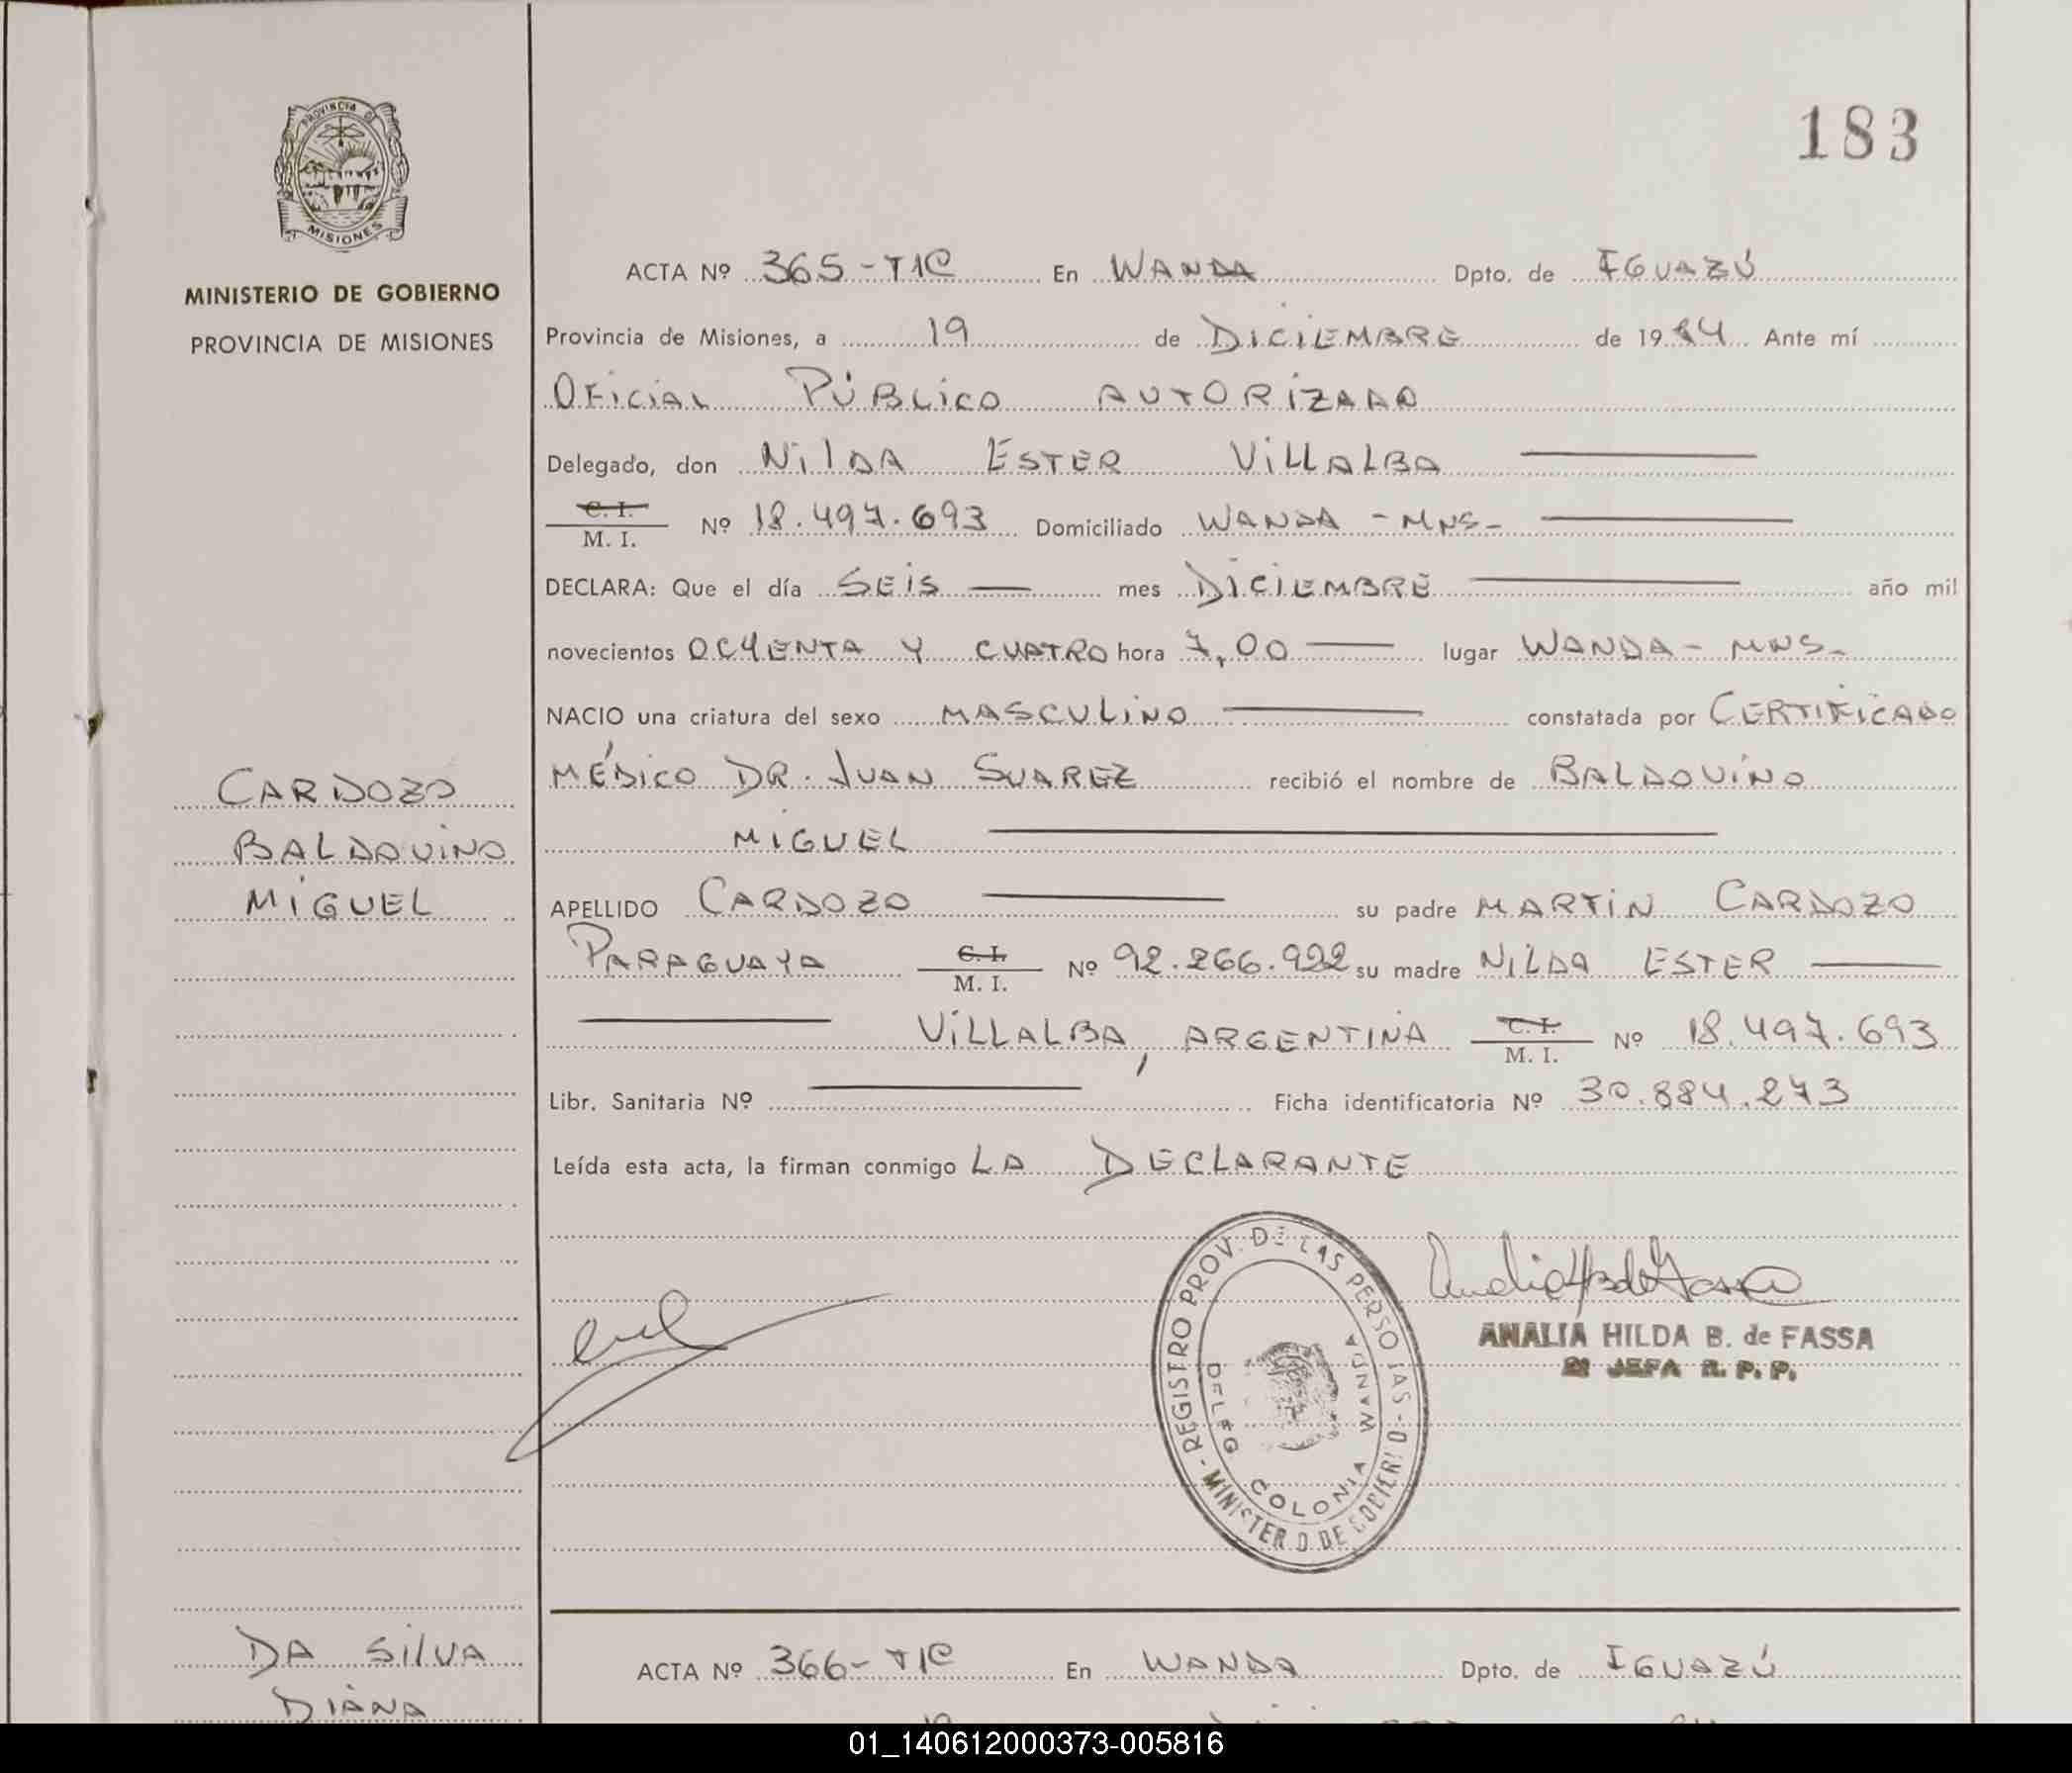 183
PROVINCIA DE
MISIONES
MINISTERIO DE GOBIERNO
PROVINCIA DE MISIONES
ACTA Nº 365-T1C En WANDA Dpto. de IGUAZÚ
Provincia de Misiones, a 19 de DICIEMBRE de 1984 Ante mí
OFICIAL PÚBLICO AUTORIZADO
Delegado, don NILDA ESTER VILLALBA
C. I.
M. I. Nº 18.497.693 Domiciliado WANDA - MNS-
DECLARA: Que el día SEIS mes DICIEMBRE año mil
novecientos OCHENTA Y CUATRO hora 7,00 lugar WANDA - MNS-
NACIO una criatura del sexo MASCULINO constatada por CERTIFICADO
MÉDICO DR. JUAN SUAREZ recibió el nombre de BALDOUINO
MIGUEL
CARDOZO
BALDOUINO
MIGUEL
APELLIDO CARDOZO su padre MARTIN CARDOZO
PARAGUAYA C. I. M. I. Nº 92.266.922 su madre NILDA ESTER
VILLALBA, ARGENTINA C. I. M. I. Nº 18.497.693
Libr. Sanitaria Nº Ficha identificatoria Nº 30.884.273
Leída esta acta, la firman conmigo LA DECLARANTE
REGISTRO PROV. DE LAS PERSONAS - MINISTERIO DE GOBIERNO -
DELEG COLONIA WANDA
ANALIA HILDA B. de FASSA
JEFA R. P. P.
DA SILVA
DIANA
ACTA Nº 366-T1C En WANDA Dpto. de IGUAZÚ
01_140612000373-005816